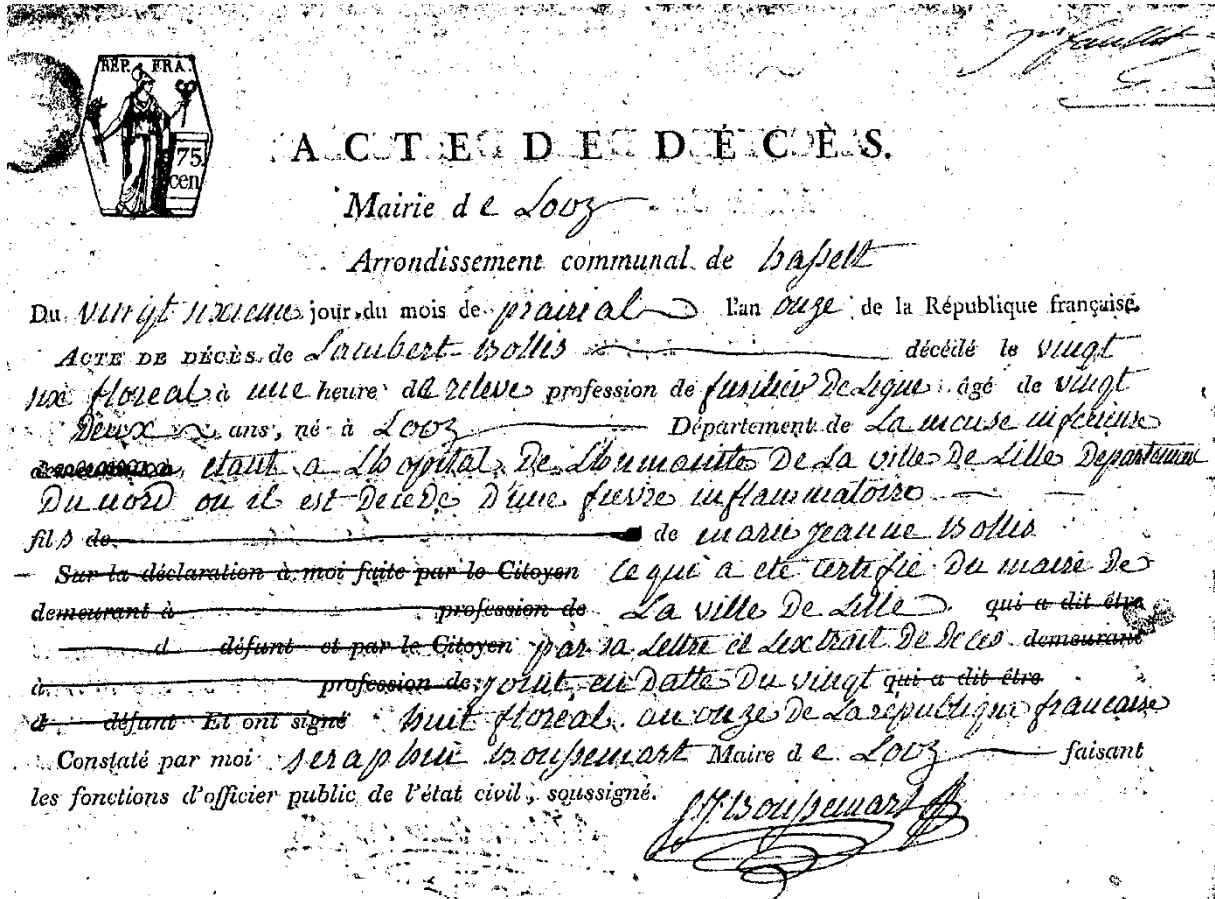 REP. FRA.
75
cen
ACTE DE DÉCÈS.
Mairie de Looz
Arrondissement communal de hasselt
Du vingt sixieme jour du mois de prairial l'an onze de la République française.
ACTE DE DÉCÈS de Lambert Bollis décédé le vingt
six floreal à une heure de releve profession de fusilier De Ligne âgé de vingt
Deux ans, né à Looz Département de La meuse inferieure
etant a Lhopital De Lhumanite De La ville De Lille Departement
Du nord ou il est Decede D'une fievre inflammatoire
fils de de marie jeanne Bollis
Sur la déclaration à moi faite par le Citoyen Ce qui a ete certifie Du maire De
demeurant à profession de La ville De Lille qui a dit être
d défunt et par le Citoyen par sa Lettre et Lextrait De Deces demeurant
à profession de joint, en Datte Du vingt qui a dit être
d défunt Et ont signé huit floreal an onze de La republique francaise
Constaté par moi seraphin Boussemart Maire de Looz faisant
les fonctions d'officier public de l'état civil, soussigné.
Boussemart